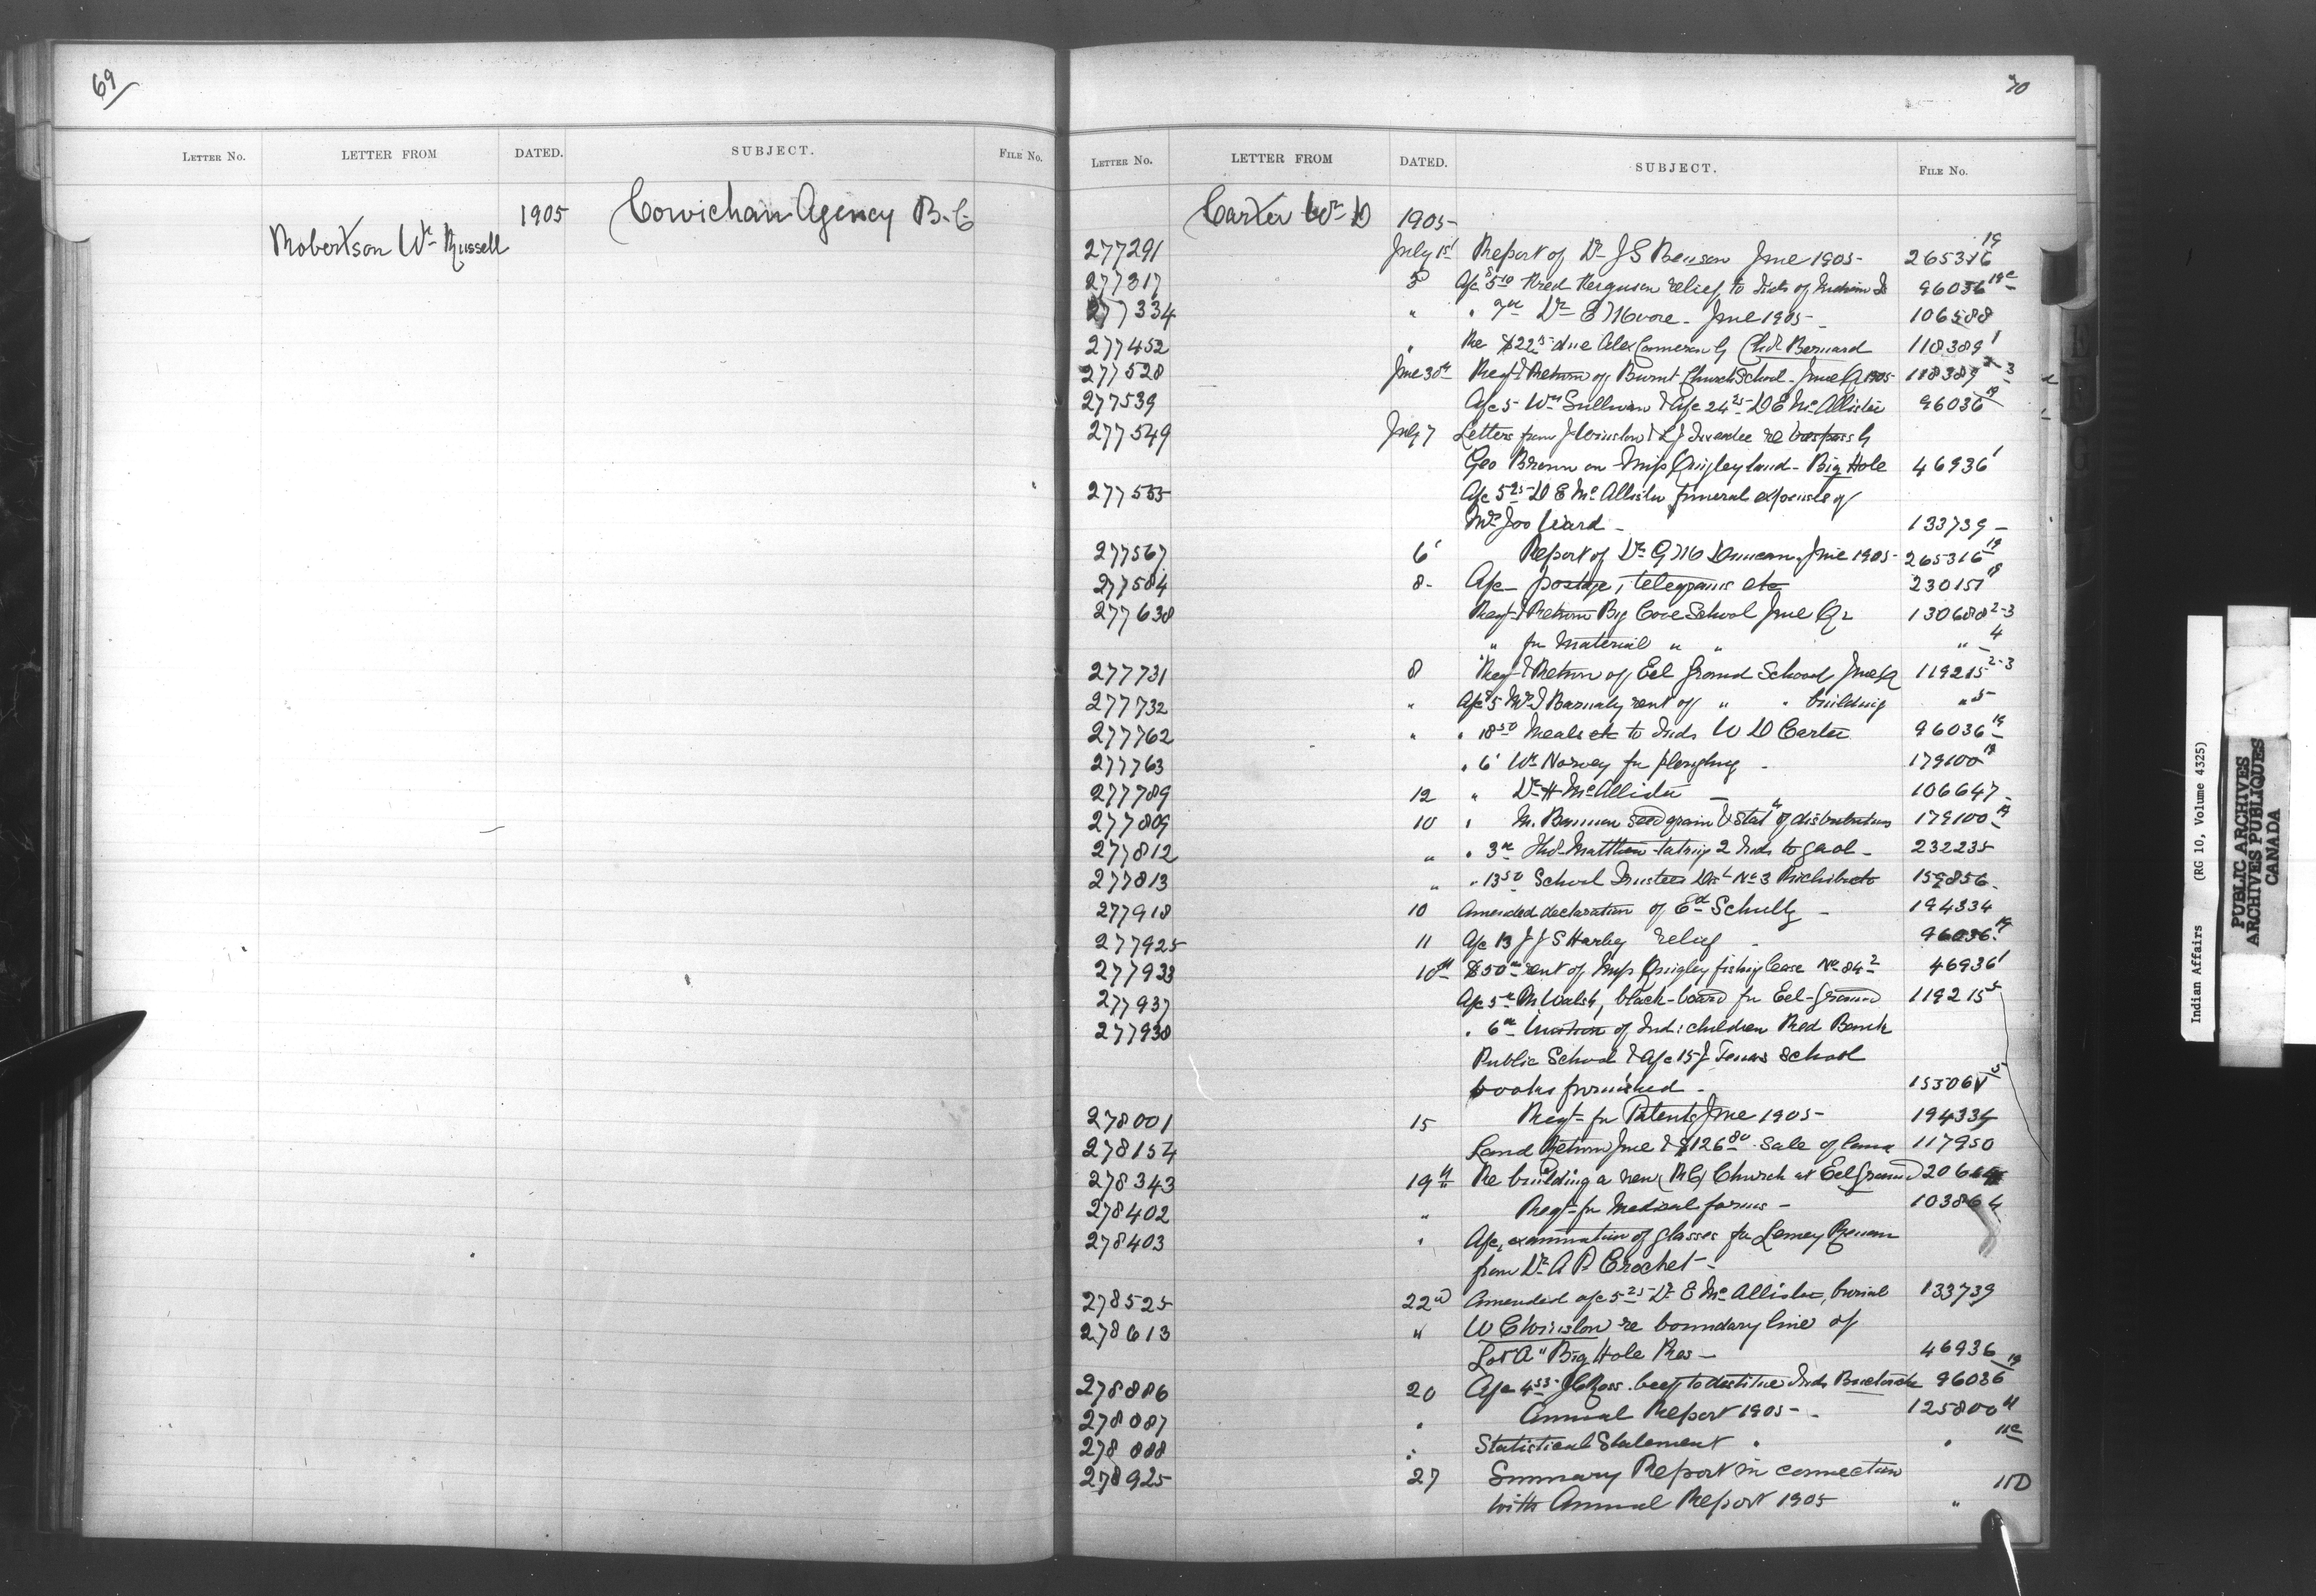 69
LETTER NO. LETTER FROM DATED. SUBJECT. FILE NO.
1905 Cowichan Agency B.C
Robertson Wm Russell
70
LETTER NO. LETTER FROM DATED. SUBJECT. FILE NO.
Carter Wm D 1905-
277291 July 1st Report of Dr J S Benson June 1905- 265316 19
277317 5 A/c 5.10 Fred Ferguson relief to Inds of Indian Is 96036 19c
277334 " " 7.00 Dr E Moore - June 1905- 106588
277452 " Re $22 due Alex Cameron by Chief Bernard 118389 1
277528 June 30th Reqt & Return of Burnt Church School - June Qr 1905 118389 2-3
277539 A/c 5- Wm Sullivan & A/c 24.25 D E McAllister 96036 19
277549 July 7 Letters from J Winslow & re trespass by
Geo Brown on Miss Quigley land - Big Hole 46936 1
277555 A/c 5.25 D E McAllister funeral expenses of
Mrs Ward - 133739 -
277567 6 Report of Dr G Duncan, June 1905- 265316 19
277584 8- A/c - postage, telegrams etc 230151
277638 Reqt & Return Big Cove School June Qr 130688 2-3
" for material " " " 4
277731 8 Reqt & Return of Eel Ground School, June Qr 119215 2-3
277732 " A/c 5 Mrs Barnaby rent of " " building " 5
277762 " " 18.50 Meals etc to Inds W D Carter 96036 19
277763 " 6 Wm Norvey for ploughing - 179100
277789 12 " Dr H McAllister - 106647 -
277809 10 " M. Bannon seed grain & Stat of distribution 179100
277812 " " 3.00 Matthew taking 2 Inds to gaol - 232235
277813 " " 13.50 School Trustees Dist No 3 Richibucto 159856 -
277918 10 Amended declaration of Ed Schultz - 194334
277925 11 A/c 13 J J S Harley relief - 96036 19
277933 10th $50.00 rent of Miss Quigley fishing lease No 84 46936 1
277937 A/c 5.00 M Walsh, black-board for Eel-Ground 119215 5
277938 " 6.00 tuition of Ind: children Red Bank
Public School & A/c 15 J school
books furnished -
278001 15 Reqt - for Patents June 1905- 194334
278154 Land Return June & $126.80 sale of land 117950
278343 19th Re building a new (R C) Church at Eel Ground
278402 " Reqt - for Medical forms - 103864
278403 " A/c, examination of glasses for
from Dr A P Crochet -
278525 22nd Amended a/c 5.25 Dr E McAllister, burial 133739
278613 " W C Winslow re boundary line of
Lot A" Big Hole Res - 46936
278886 20 A/c 4.53 Ross. beef to destitute Inds Buctouche 96036 19
278887 " Annual Report 1905 - 125800 11
278888 " Statistical Statement " " 11c
278925 27 Summary Report in connection 11D
with Annual Report 1905 "
Indian Affairs (RG 10, Volume 4325)
PUBLIC ARCHIVES
ARCHIVES PUBLIQUES
CANADA